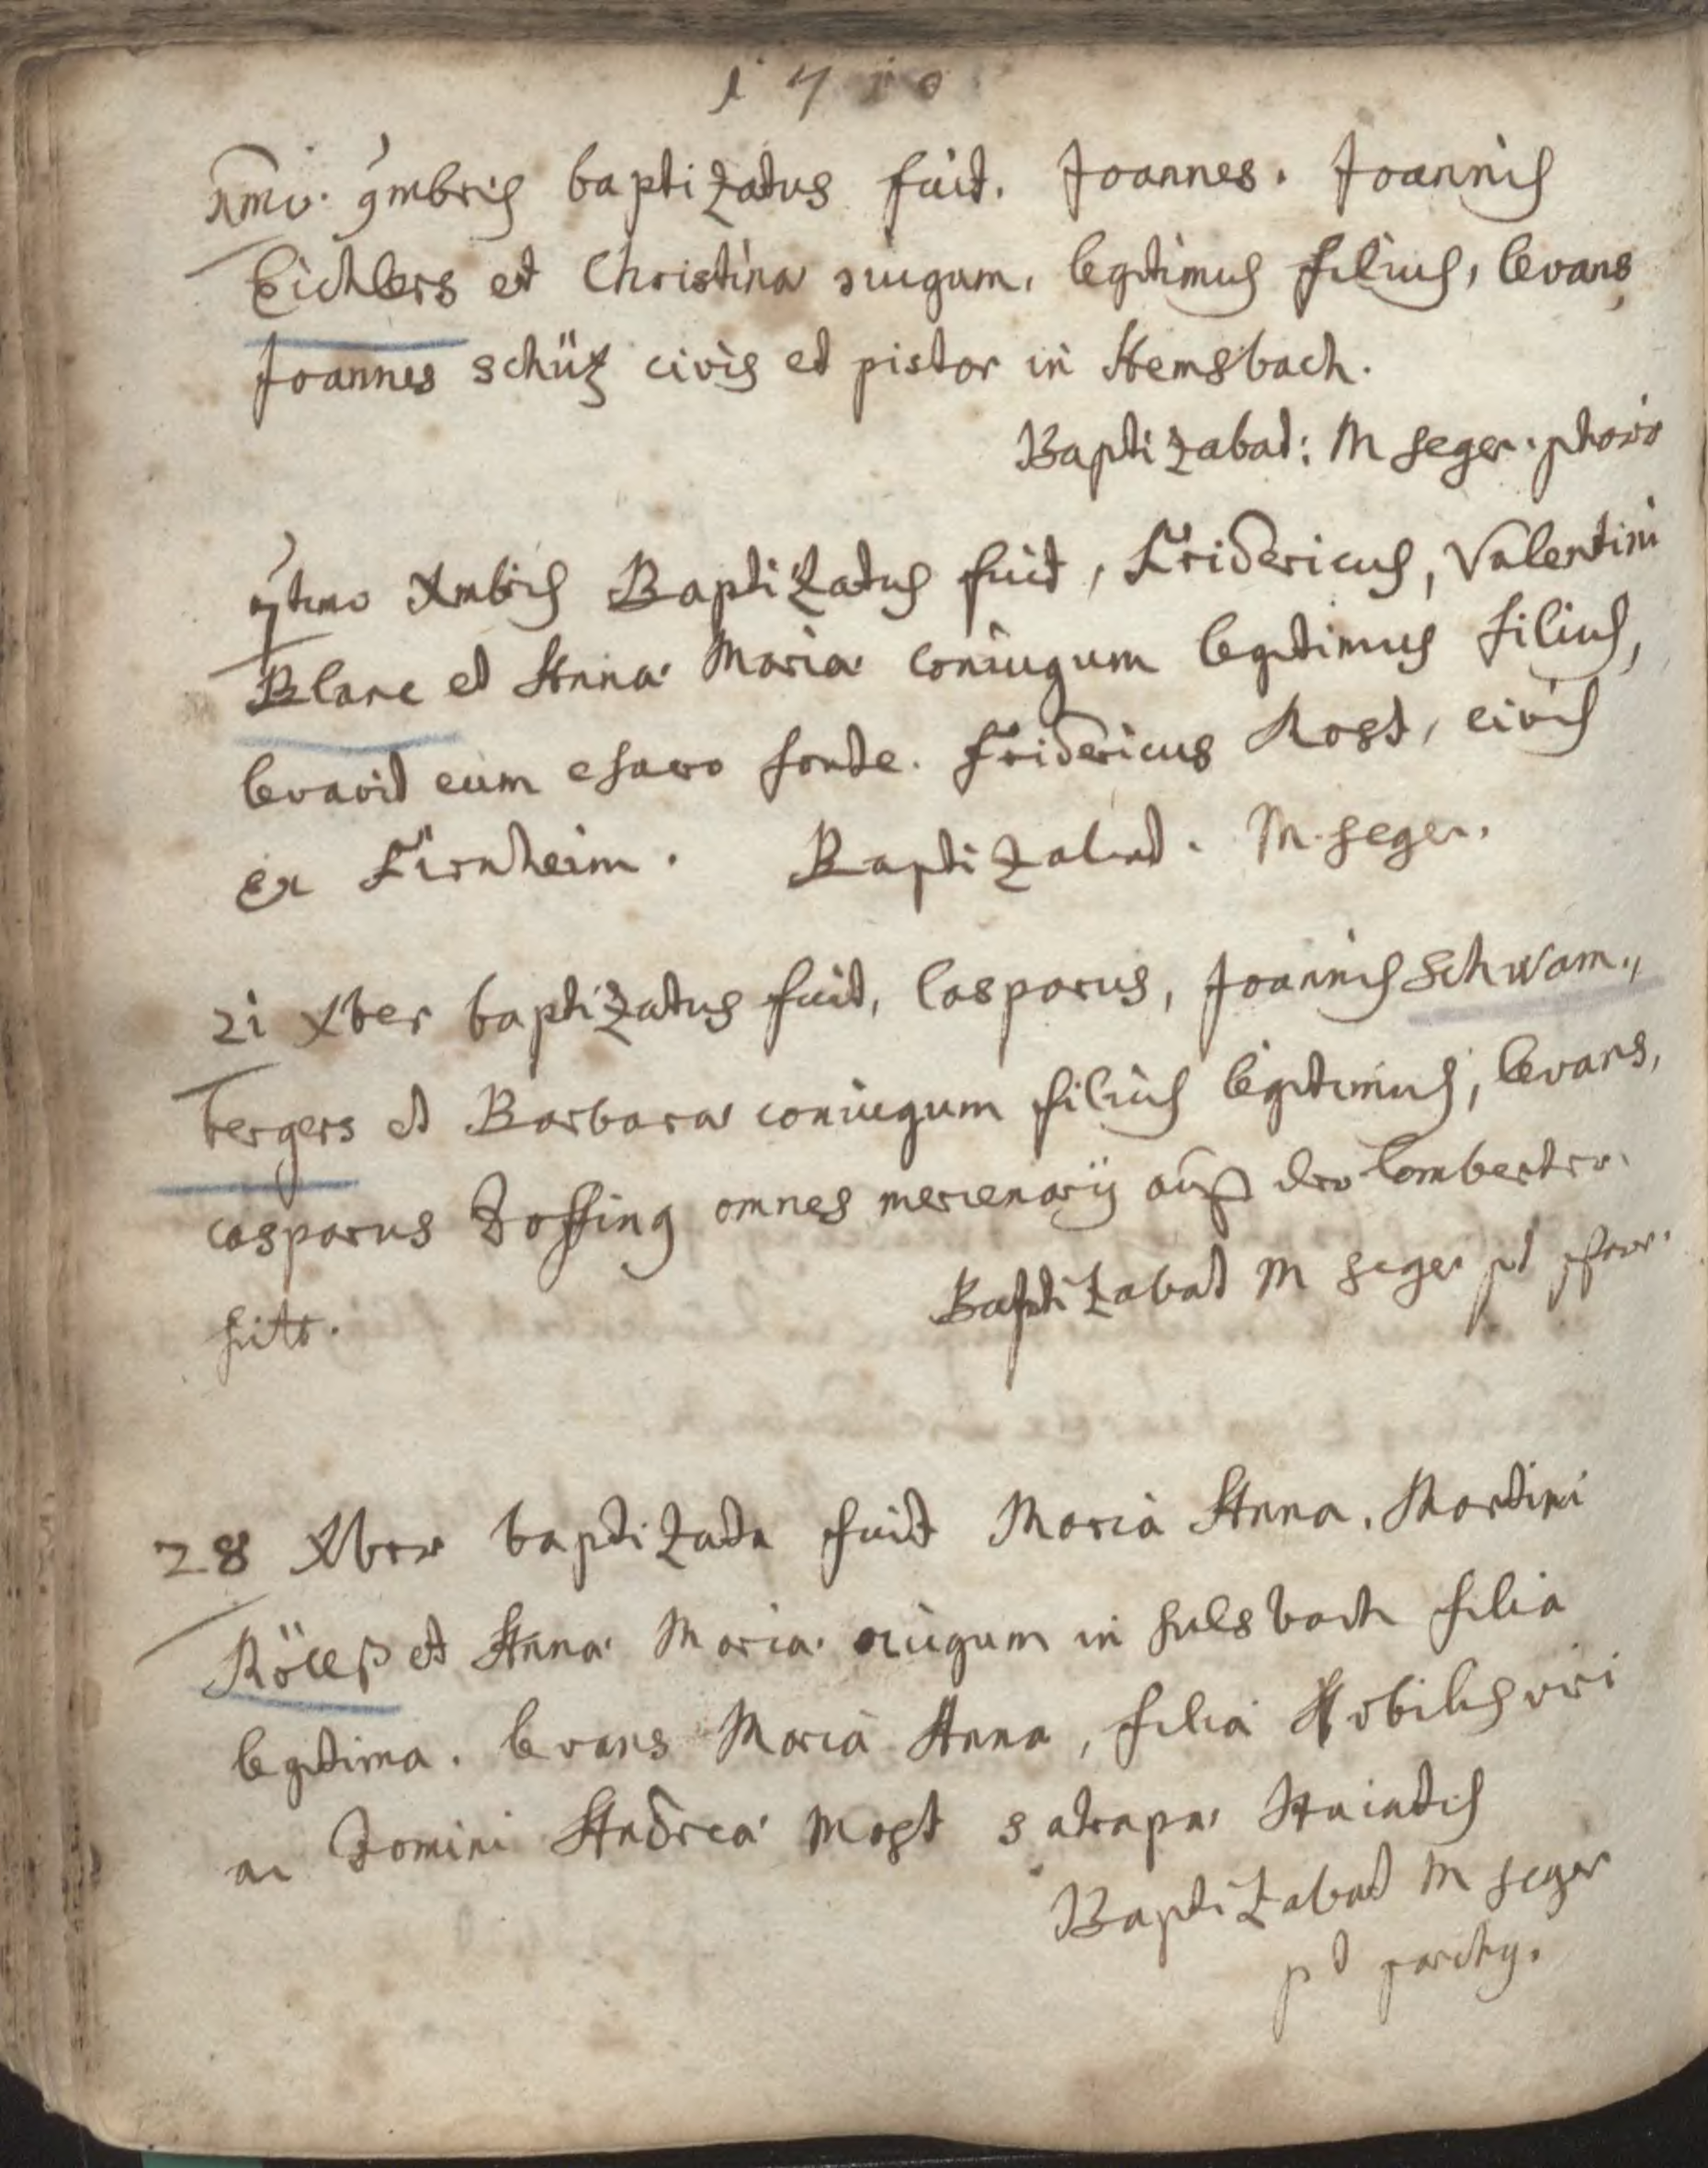 1710
9mbris baptizatus fuit. Joannes. Joannis
Eichlers et Christina 9iugum, legitimus filius, levans
Joannes schütz civis et pistor in Hemsbach.
Baptizabat: M seger.
Xmbris Baptizatus fuit, Fridericus, Valentini
Blanc et Anna Maria coniugum legitimus filius,
levavit eum e sacro fonte. Fridericus Rost, civis
ex Firnheim. Baptizabat. M. seger.
21 Xber baptizatus fuit, Casparus, Joannis Schwam,,
bergers et Barbara coniugum filius legitimus, levans,
casparus Doffing omnes mercenarij auß der
hits. Baptizabat M seger pt
28 Xber baptizata fuit Maria Anna, Martini
et Anna Maria 9iugum in Sulsbach filia
legitima. levans Maria Anna, filia Nobilis viri
ac Domini Andrea Most satrapa
Baptizabat M seger
pt